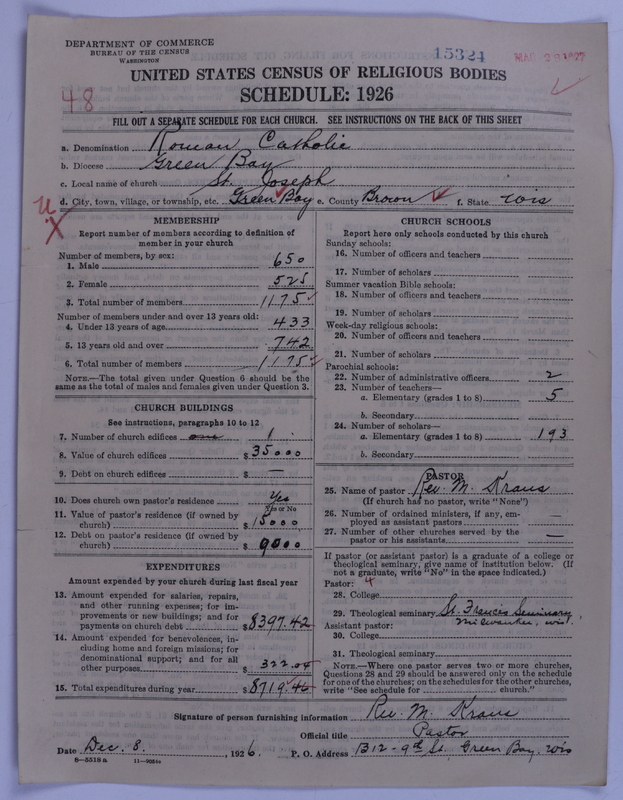 DEPARTMENT OF COMMERCE
BUREAU OF THE CENSUS
WASHINGTON
15324
48
UNITED STATES CENSUS OF RELIGIOUS BODIES
SCHEDULE: 1926
FILL OUT A SEPARATE SCHEDULE FOR EACH CHURCH. SEE INSTRUCTIONS ON THE BACK OF THIS SHEET
a. Denomination Roman Catholic
b. Diocese Green Bay
c. Local name of church St. Joseph
d. City, town, village, or township, etc. Green Bay e. County Brown f. State Wis
MEMBERSHIP
Report number of members according to definition of
member in your church
Number of members, by sex:
1. Male 650
2. Female 525
3. Total number of members 1175
Number of members under and over 13 years old:
4. Under 13 years of age 433
5. 13 years old and over 742
6. Total number of members 1175
NOTE.—The total given under Question 6 should be the
same as the total of males and females given under Question 3.
CHURCH BUILDINGS
See instructions, paragraphs 10 to 12
7. Number of church edifices one 1
8. Value of church edifices $35000
9. Debt on church edifices $ —
10. Does church own pastor's residence Yes
Yes or No
11. Value of pastor's residence (if owned by
church) $15000
12. Debt on pastor's residence (if owned by
church) $9000
EXPENDITURES
Amount expended by your church during last fiscal year
13. Amount expended for salaries, repairs,
and other running expenses; for im-
provements or new buildings; and for
payments on church debt $8397.42
14. Amount expended for benevolences, in-
cluding home and foreign missions; for
denominational support; and for all
other purposes 322.04
15. Total expenditures during year $8719.46
CHURCH SCHOOLS
Report here only schools conducted by this church
Sunday schools:
16. Number of officers and teachers
17. Number of scholars
Summer vacation Bible schools:
18. Number of officers and teachers
19. Number of scholars
Week-day religious schools:
20. Number of officers and teachers
21. Number of scholars
Parochial schools:
22. Number of administrative officers 2
23. Number of teachers—
a. Elementary (grades 1 to 8) 5
b. Secondary
24. Number of scholars—
a. Elementary (grades 1 to 8) 193
b. Secondary
PASTOR
25. Name of pastor Rev. M. Kraus
(If church has no pastor, write "None")
26. Number of ordained ministers, if any, em-
ployed as assistant pastors —
27. Number of other churches served by the
pastor or his assistants —
If pastor (or assistant pastor) is a graduate of a college or
theological seminary, give name of institution below. (If
not a graduate, write "No" in the space indicated.)
Pastor: 4
28. College
29. Theological seminary St. Francis Seminary
Milwaukee, Wis.
Assistant pastor:
30. College
31. Theological seminary
NOTE.—Where one pastor serves two or more churches,
Questions 28 and 29 should be answered only on the schedule
for one of the churches; on the schedules for the other churches,
write "See schedule for church."
Signature of person furnishing information Rev. M. Kraus
Official title Pastor
Date Dec. 8, 1926. P. O. Address 1312 - 9th St. Green Bay, Wis
8—5518a